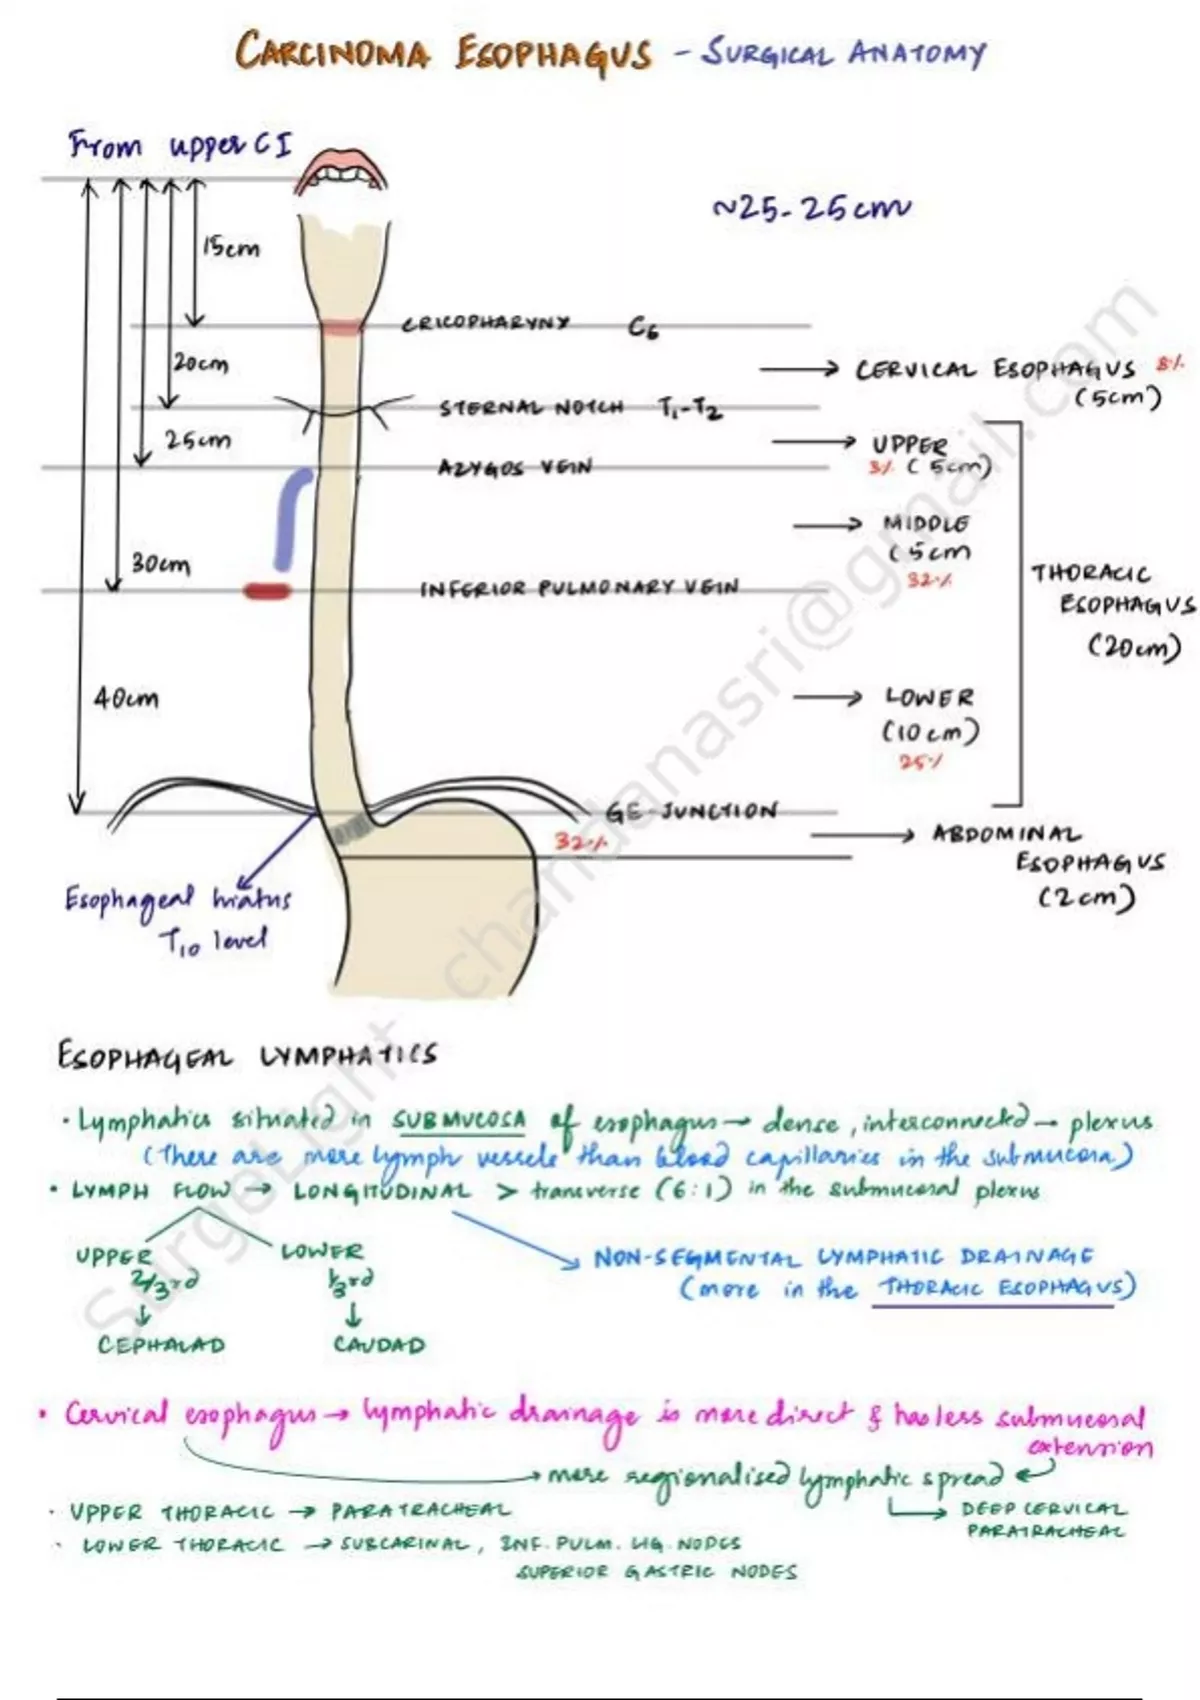 CARCINOMA ESOPHAGUS - SURGICAL ANATOMY
From upper CI
~25-25cm
15cm
CRICOPHARYNX C6
20cm
CERVICAL ESOPHAGUS 8%
(5cm)
STERNAL NOTCH T1-T2
25cm
UPPER
3% (5cm)
AZYGOS VEIN
MIDDLE
(5cm
32%
30cm
INFERIOR PULMONARY VEIN
THORACIC
ESOPHAGUS
(20cm)
40cm
LOWER
(10cm)
25%
GE-JUNCTION
32%
ABDOMINAL
ESOPHAGUS
(2cm)
Esophageal hiatus
T10 level
ESOPHAGEAL LYMPHATICS
• Lymphatics situated in SUBMUCOSA of esophagus → dense, interconnected → plexus
(There are more lymph vessels than blood capillaries in the submucosa)
• LYMPH FLOW → LONGITUDINAL > transverse (6:1) in the submucosal plexus
UPPER
2/3rd
↓
CEPHALAD
LOWER
1/3rd
↓
CAUDAD
NON-SEGMENTAL LYMPHATIC DRAINAGE
(more in the THORACIC ESOPHAGUS)
• Cervical esophagus → lymphatic drainage is more direct & has less submucosal
extension
→ more regionalised lymphatic spread
DEEP CERVICAL
PARATRACHEAL
• UPPER THORACIC → PARATRACHEAL
• LOWER THORACIC → SUBCARINAL, INF. PULM. LIG. NODES
SUPERIOR GASTRIC NODES
SurgeLight chandanasri@gmail.com